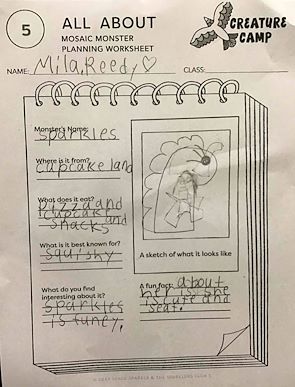 5
ALL ABOUT
MOSAIC MONSTER
PLANNING WORKSHEET
CREATURE
CAMP
NAME: Mila, Reedy
CLASS:
Monster's Name:
sparkles
Where is it from?
cupcake land
What does it eat?
pizza and
cupcake and
snacks
What is it best known for?
squishy
What do you find
interesting about it?
sparkles
is funey.
A sketch of what it looks like
A fun fact: about
her is she
is cute and